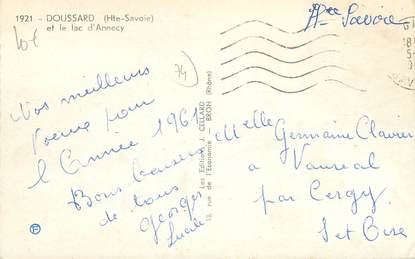 1921 - DOUSSARD (Hte-Savoie)
et le lac d'Annecy
lot
74
Hte Savoie
Nos meilleurs
voeux pour
l'Année 1961
Bons baisers
de tous
Georges
Lucile
Les Editions J. CELLARD
13, rue de l'Economie BRON (Rhône)
Melle Germaine Clavier
a Vaureal
par Cergy
S et Oise